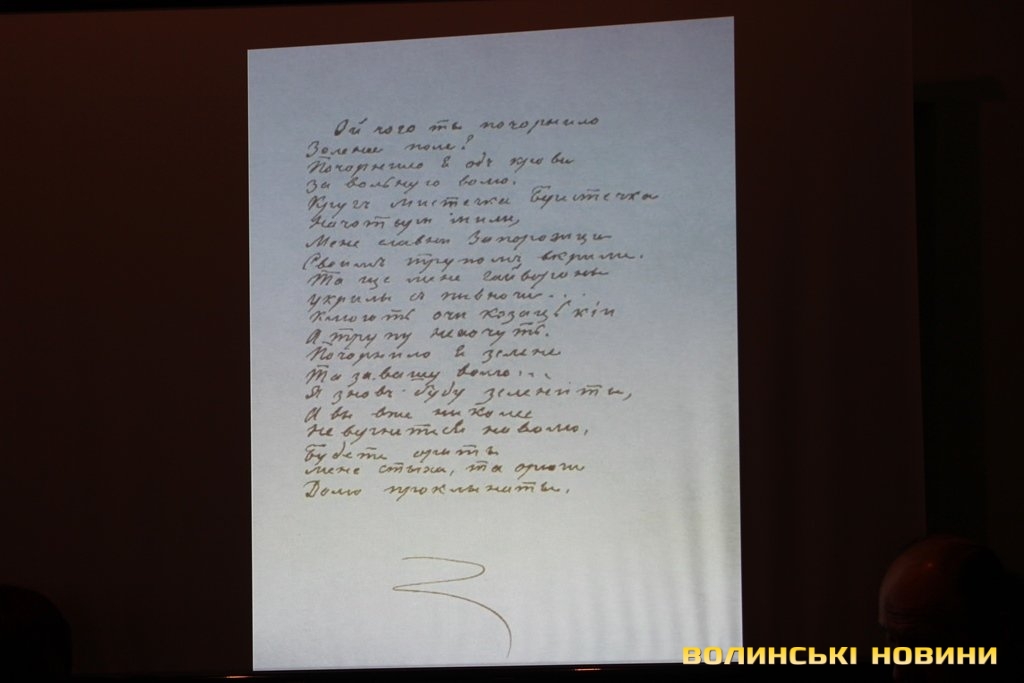 Ой чого ты почорнило
Зелене поле?
Почорнило я объ крови
За вольную волю.
Кругъ мистечка Берестечка
На чотыри мили,
Мене славни Запорожци
Своимъ трупомъ вкрили.
Та ще мене гайвороны
укрилы съ пивночи...
Клюють очи козацькіи
А трупу нехочуть.
Почорнило я зелене
Та за вашу волю...
Я зновъ буду зеленіты,
А вы вже николы
Не вернитеся на волю,
Будете ораты
мене стыха, та орючи
Долю проклынаты.
ВОЛИНСЬКІ НОВИНИ